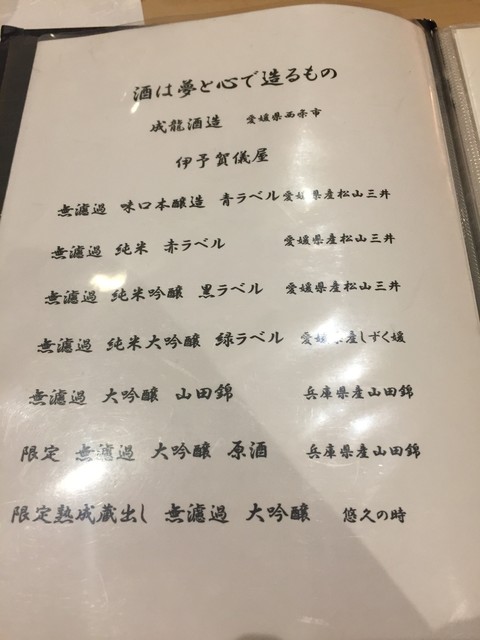 酒は夢と心で造るもの
成龍酒造 愛媛県西条市
伊予賀儀屋
無濾過 味口本醸造 青ラベル 愛媛県産松山三井
無濾過 純米 赤ラベル 愛媛県産松山三井
無濾過 純米吟醸 黒ラベル 愛媛県産松山三井
無濾過 純米大吟醸 緑ラベル 愛媛県産しずく媛
無濾過 大吟醸 山田錦 兵庫県産山田錦
限定 無濾過 大吟醸 原酒 兵庫県産山田錦
限定熟成蔵出し 無濾過 大吟醸 悠久の時